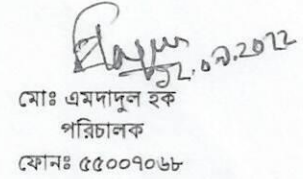 ১২.০৯.2022
মোঃ এমদাদুল হক
পরিচালক
ফোনঃ ৫৫০০৭০৬৮